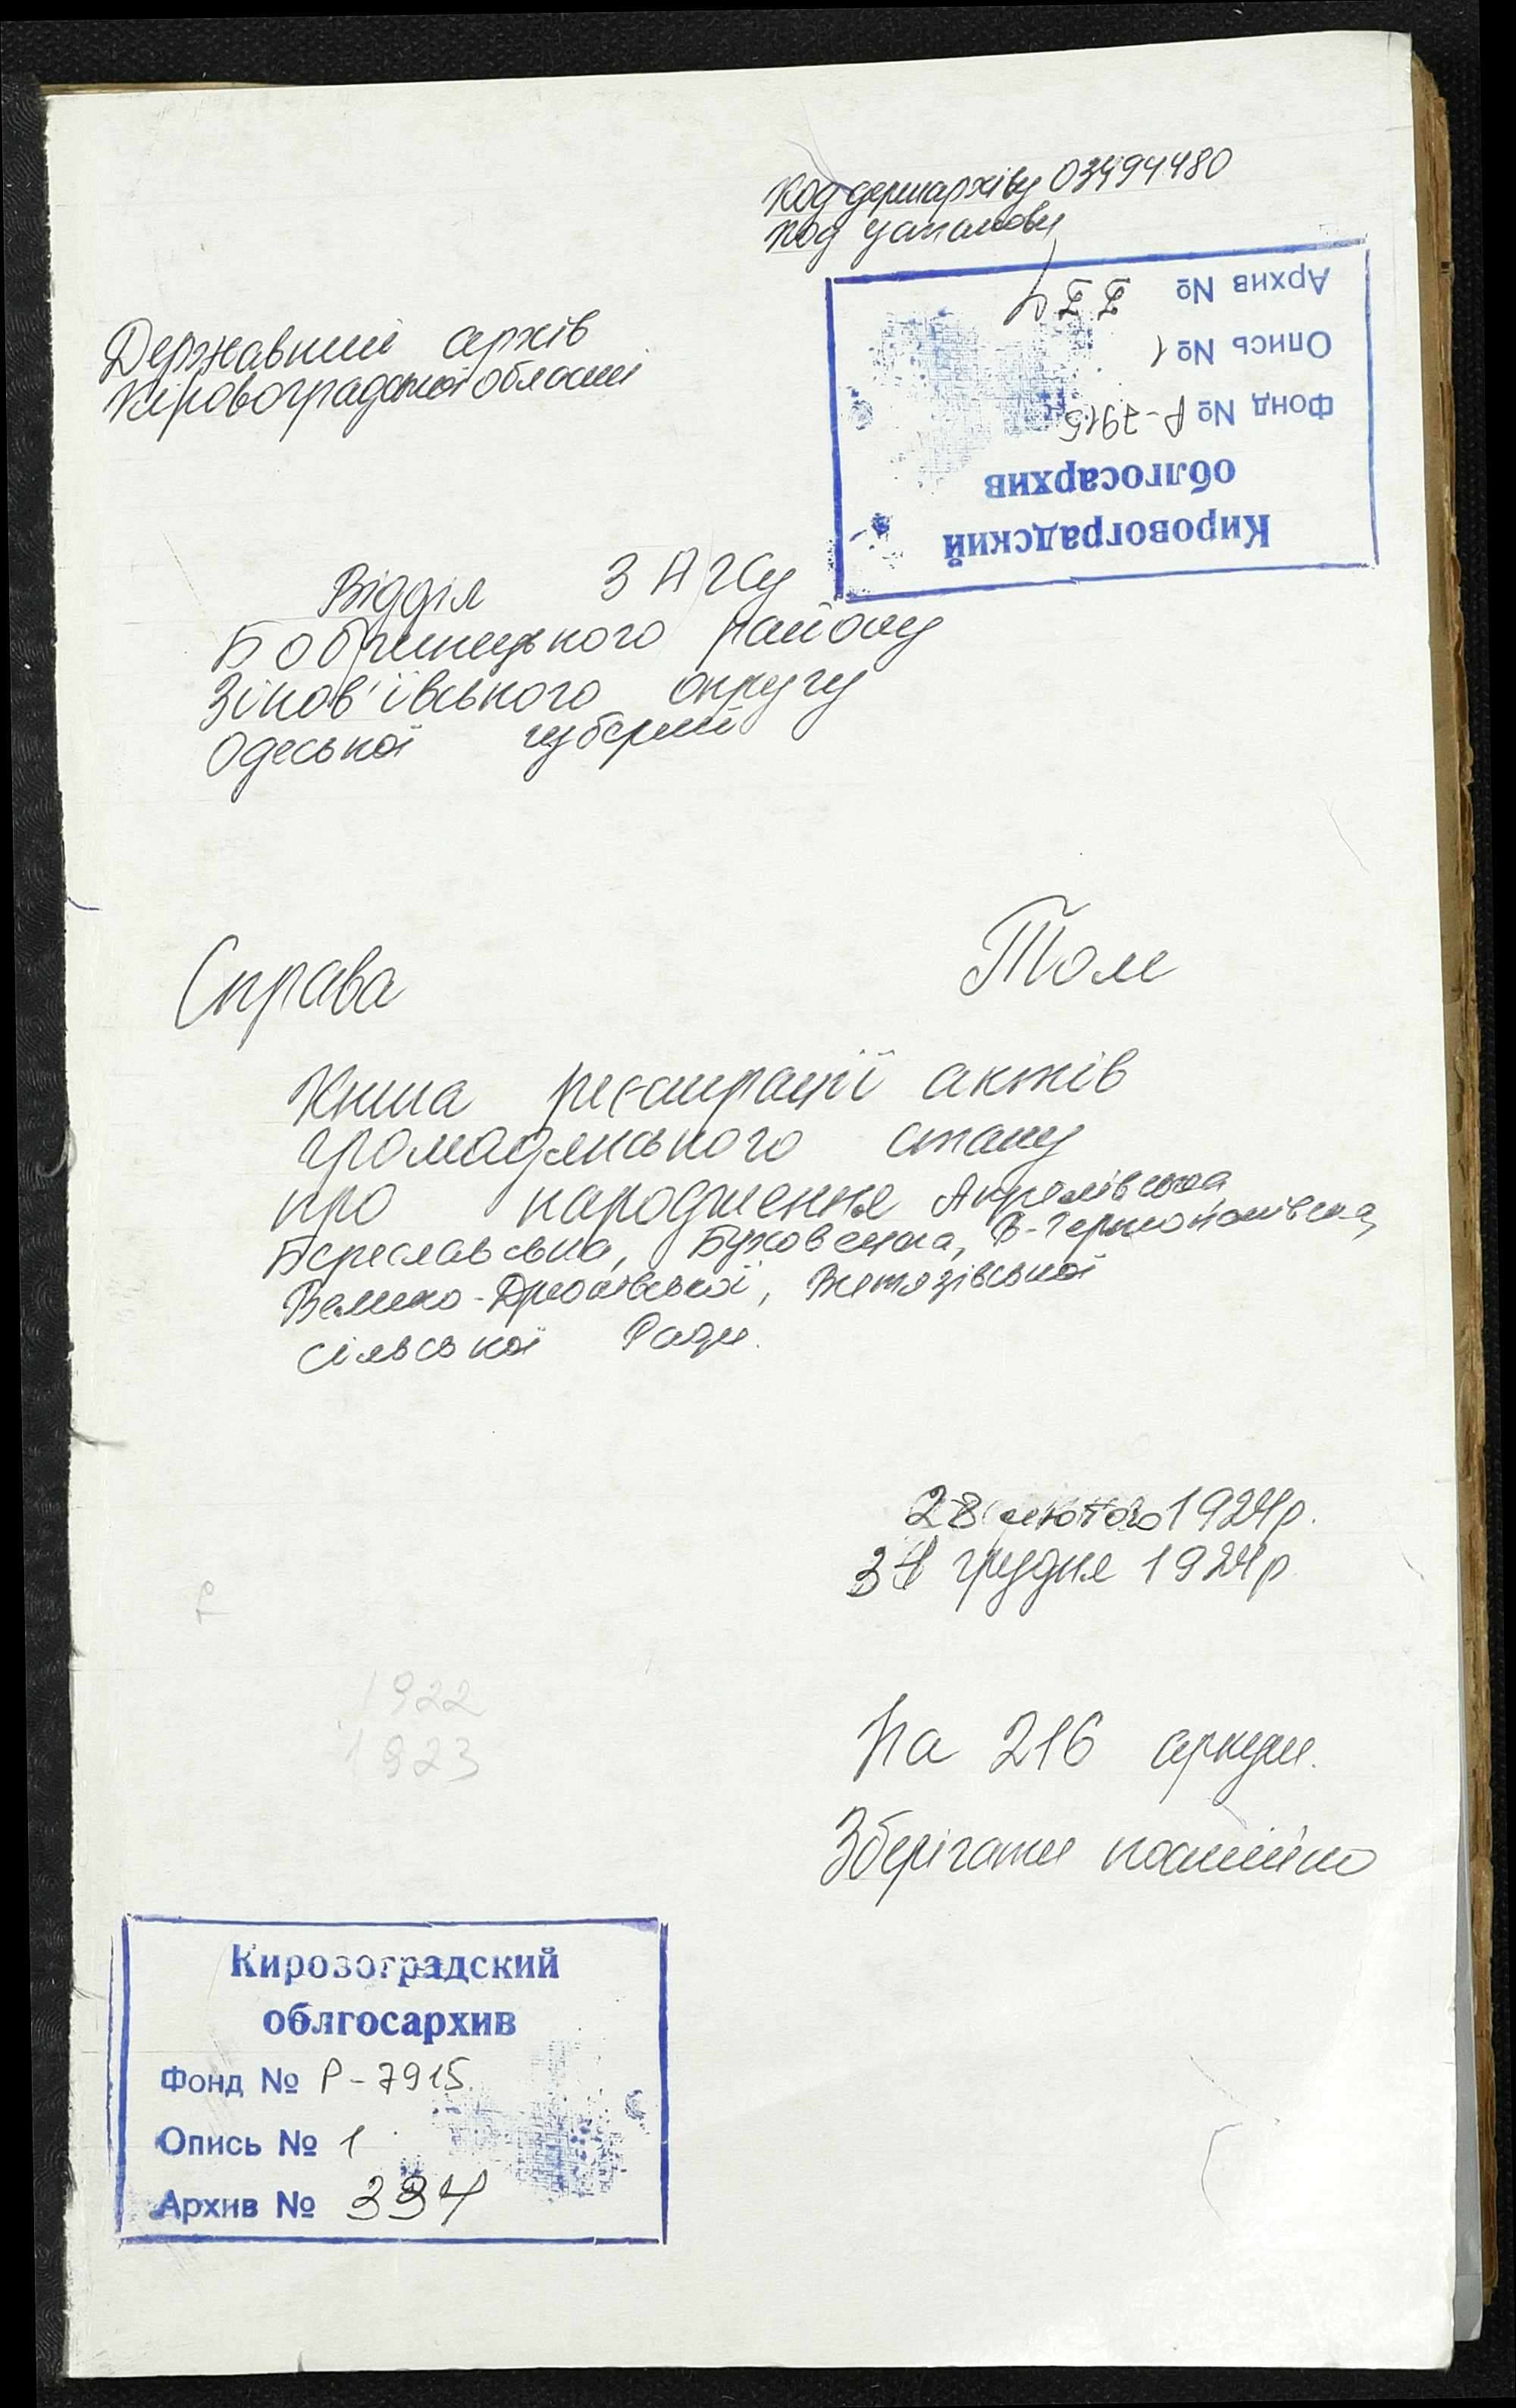 Код держархіву 03494480
Код установи
Архив № 334
Опись № 1
Фонд № Р-7915
облгосархив
Кировоградский
Державний архів
Кіровоградської області
Відділ ЗАГСу
Бобринецького району
Зінов'ївського округу
Одеської губернії
Справа Том
Книга реєстрації актів
громадянського стану
про народження
Береславська, Буховецька,
Велико-Дрюківської, Витязівської
сільської Ради.
28 лютого 1924р.
31 грудня 1924р.
1922
На 216 аркуш.
1923
Зберігати постійно
Кировоградский
облгосархив
Фонд № Р-7915
Опись № 1
Архив № 334